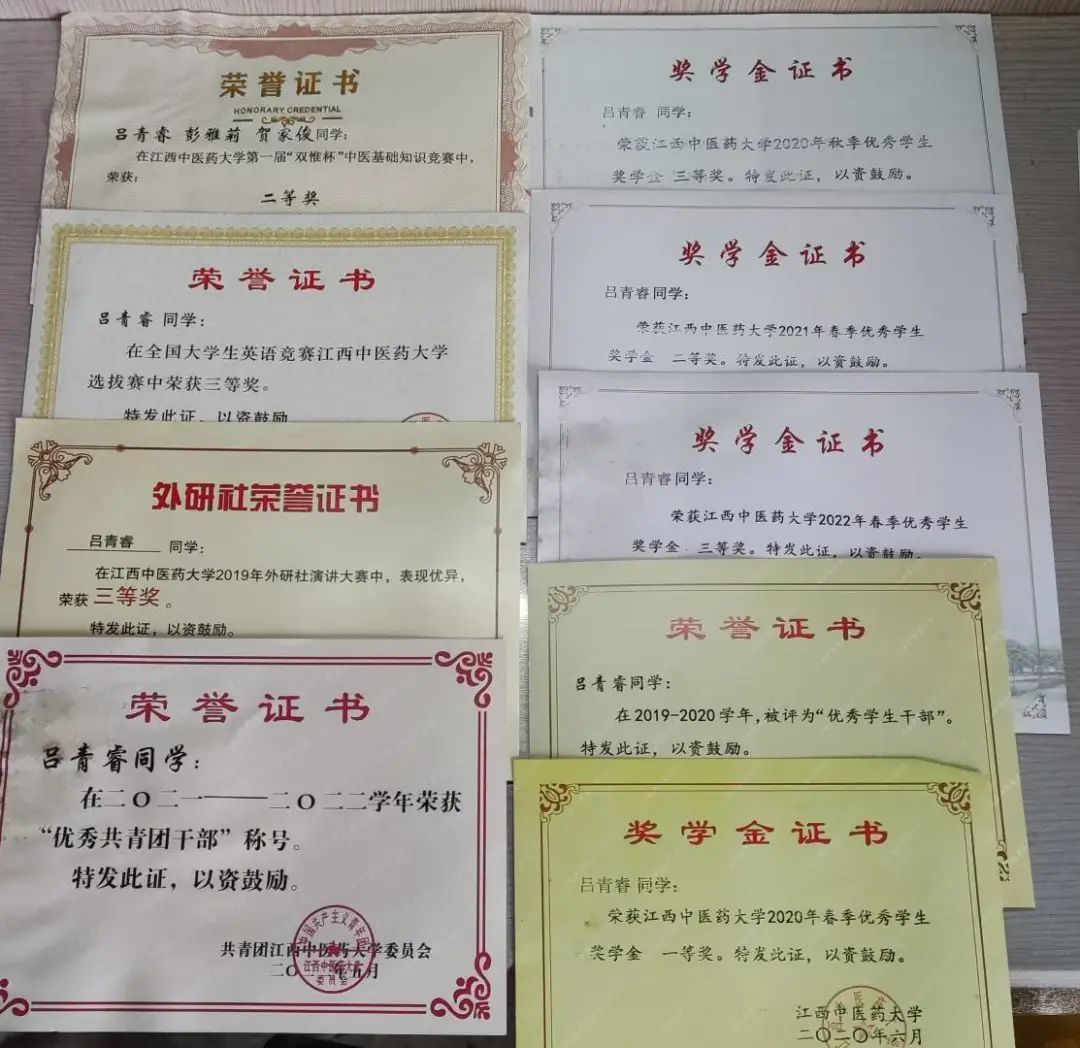 荣誉证书
HONORARY CREDENTIAL
吕青睿 彭雅莉 贺家俊同学:
在江西中医药大学第一届“双惟杯”中医基础知识竞赛中,
荣获:
二等奖
荣誉证书
吕青睿 同学:
在全国大学生英语竞赛江西中医药大学
选拔赛中荣获三等奖。
特发此证,以资鼓励
外研社荣誉证书
吕青睿 同学:
在江西中医药大学2019年外研社演讲大赛中,表现优异,
荣获 三等奖 。
特发此证,以资鼓励。
荣誉证书
吕青睿同学:
在二〇二一——二〇二二学年荣获
“优秀共青团干部”称号。
特发此证,以资鼓励。
共青团江西中医药大学委员会
奖学金证书
吕青睿 同学:
荣获江西中医药大学2020年秋季优秀学生
奖学金 三等奖。特发此证,以资鼓励。
奖学金证书
吕青睿同学:
荣获江西中医药大学2021年春季优秀学生
奖学金 二等奖。特发此证,以资鼓励。
奖学金证书
吕青睿同学:
荣获江西中医药大学2022年春季优秀学生
奖学金 三等奖。特发此证,以资鼓励。
荣誉证书
吕青睿同学:
在2019-2020学年,被评为“优秀学生干部”。
特发此证,以资鼓励。
奖学金证书
吕青睿 同学:
荣获江西中医药大学2020年春季优秀学生
奖学金 一等奖。特发此证,以资鼓励。
江西中医药大学
二〇二〇年六月